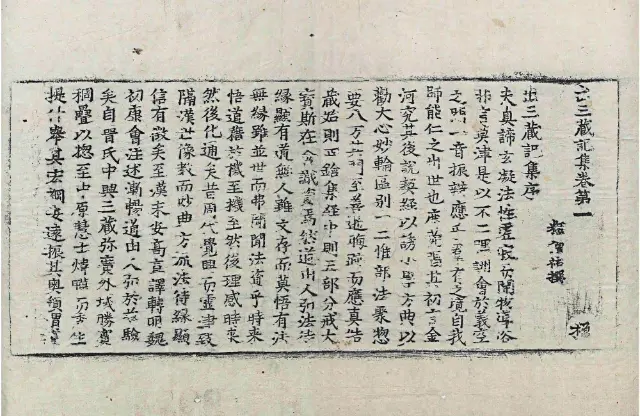 出三藏記集卷第一
釋僧祐撰
出三藏記集序
夫真諦玄凝法性虛寂而開物導俗
非言莫津是以不二默訓會於義空
之門一音振辯應乎群有之境自我
師能仁之出世也鹿苑唱其初言金
河究其後說契經以誘小學方典以
勸大心妙輪區別十二惟部法聚惣
要八万其門至善逝晦跡而應真告
藏始則四鋡集經中則五部分戒大
寶斯在含識資焉然道由人弘法法
緣顯有道無人雖文存而莫悟有法
無緣雖並世而弗聞聞法資乎時來
悟道藉於機至機至然後理感時來
然後化通矣昔周代覺興而靈津致
隔漢世像教而妙典方流法待緣顯
信有徵矣至漢末安高宣譯轉明魏
初康會注述漸暢道由人弘於茲驗
矣自晉氏中興三藏弥廣外域勝賓
稠疊以惣至中原慧士煒曄而秀生
提什舉其宏綱安遠振其奧領渭濱